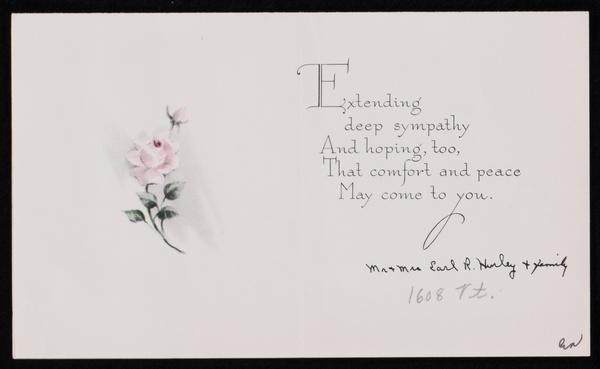 Extending
deep sympathy
And hoping, too,
That comfort and peace
May come to you.
Mr + Mrs Earl R. Hurley + Family
1608 Vt.